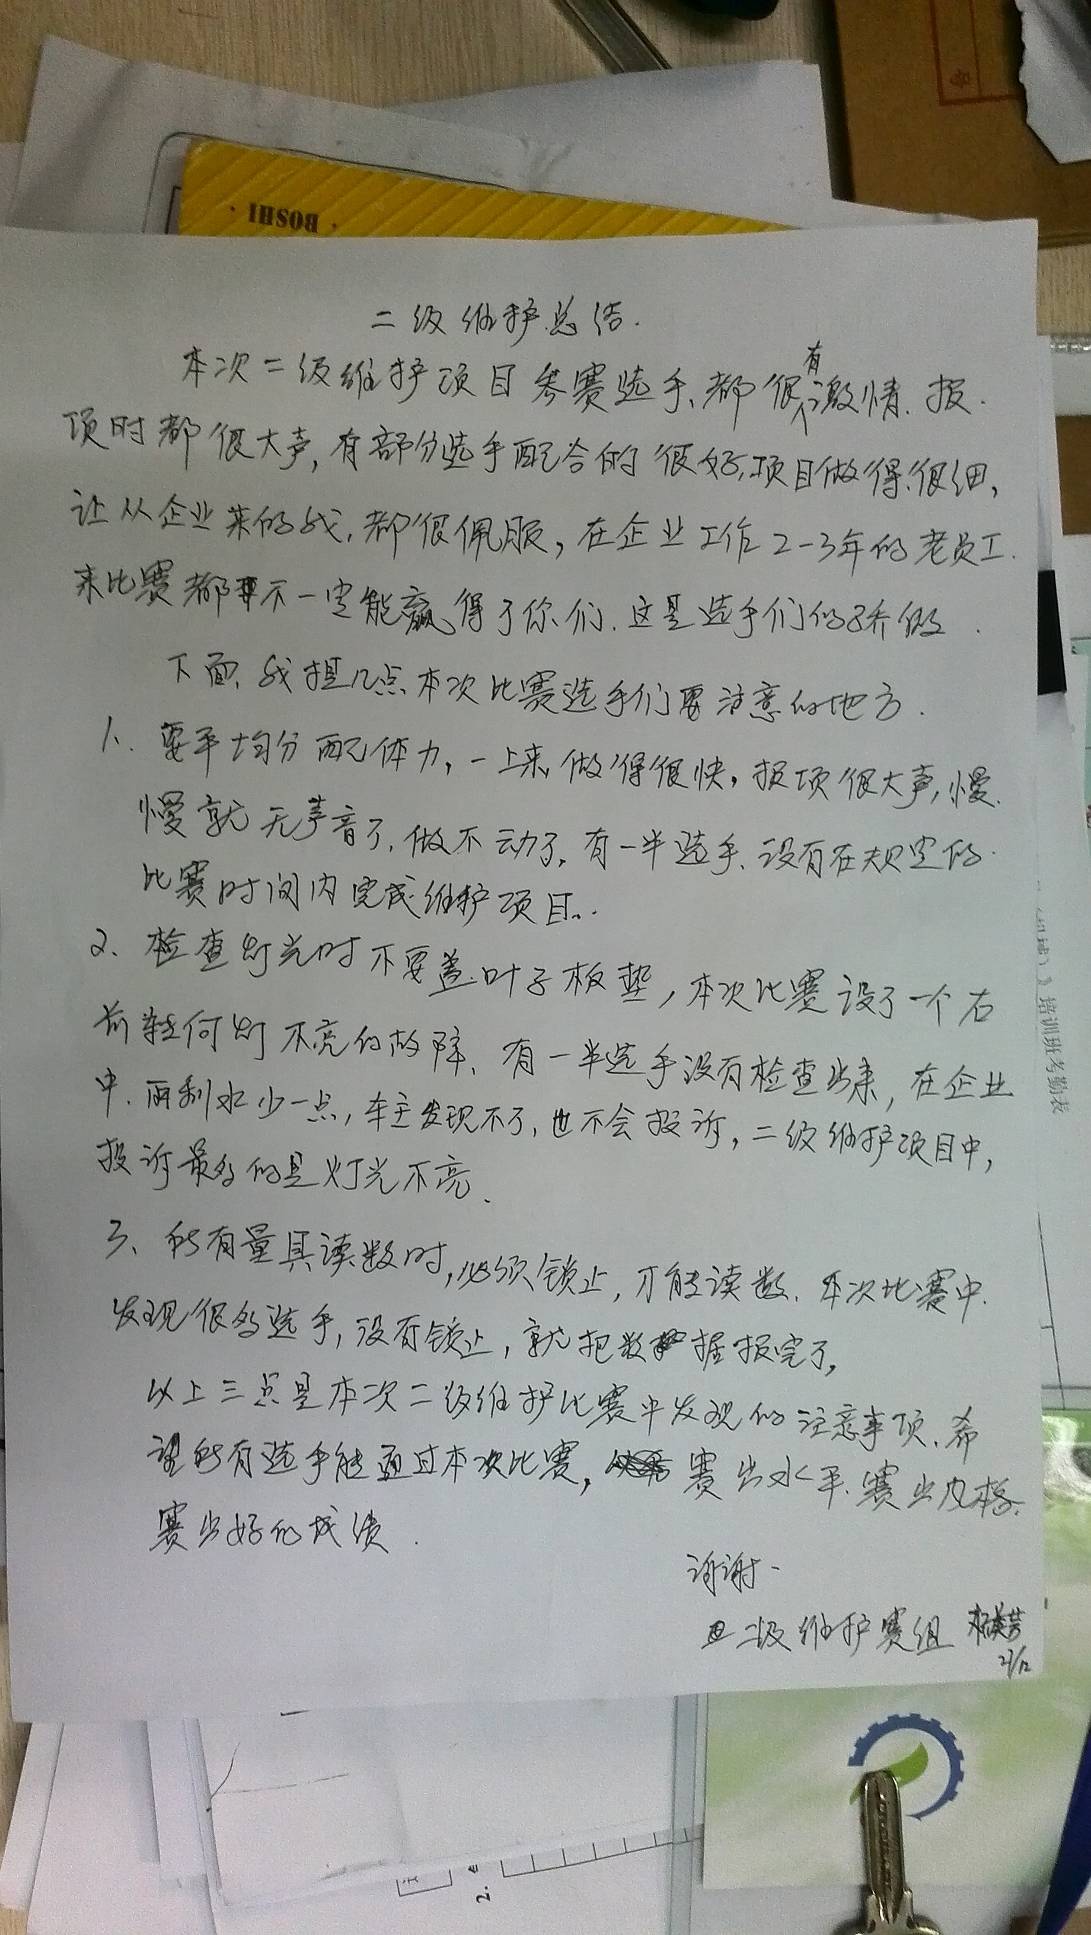 BOSHI
二级维护总结.
本次二级维护项目参赛选手、都很有激情.报.
项时都很大声,有部分选手配合的很好,项目做得很细,
让从企业来的我,都很佩服,在企业工作2-3年的老员工.
来比赛都不一定能赢得了你们.这是选手们的骄傲.
下面,我提几点本次比赛选手们要注意的地方.
1、要平均分配体力,一上来,做得很快,报项很大声,慢.
慢就无声音了,做不动了.有一半选手、没有在规定的.
比赛时间内完成维护项目..
2、检查灯光时不要盖叶子板垫,本次比赛设了一个右
前转向灯不亮的故障、有一半选手没有检查出来,在企业
中.雨刮水少一点,车主发现不了,也不会投诉,二级维护项目中,
投诉最多的是灯光不亮.
3、所有量具读数时,必须锁止,才能读数.本次比赛中.
发现很多选手,没有锁止,就把数据报完了,
以上三点是本次二级维护比赛中发现的注意事项.希
望所有选手能通过本次比赛,赛出水平.赛出风格.
赛出好的成绩.
谢谢.
二级维护赛组
21/12
培训班考勤表
2.